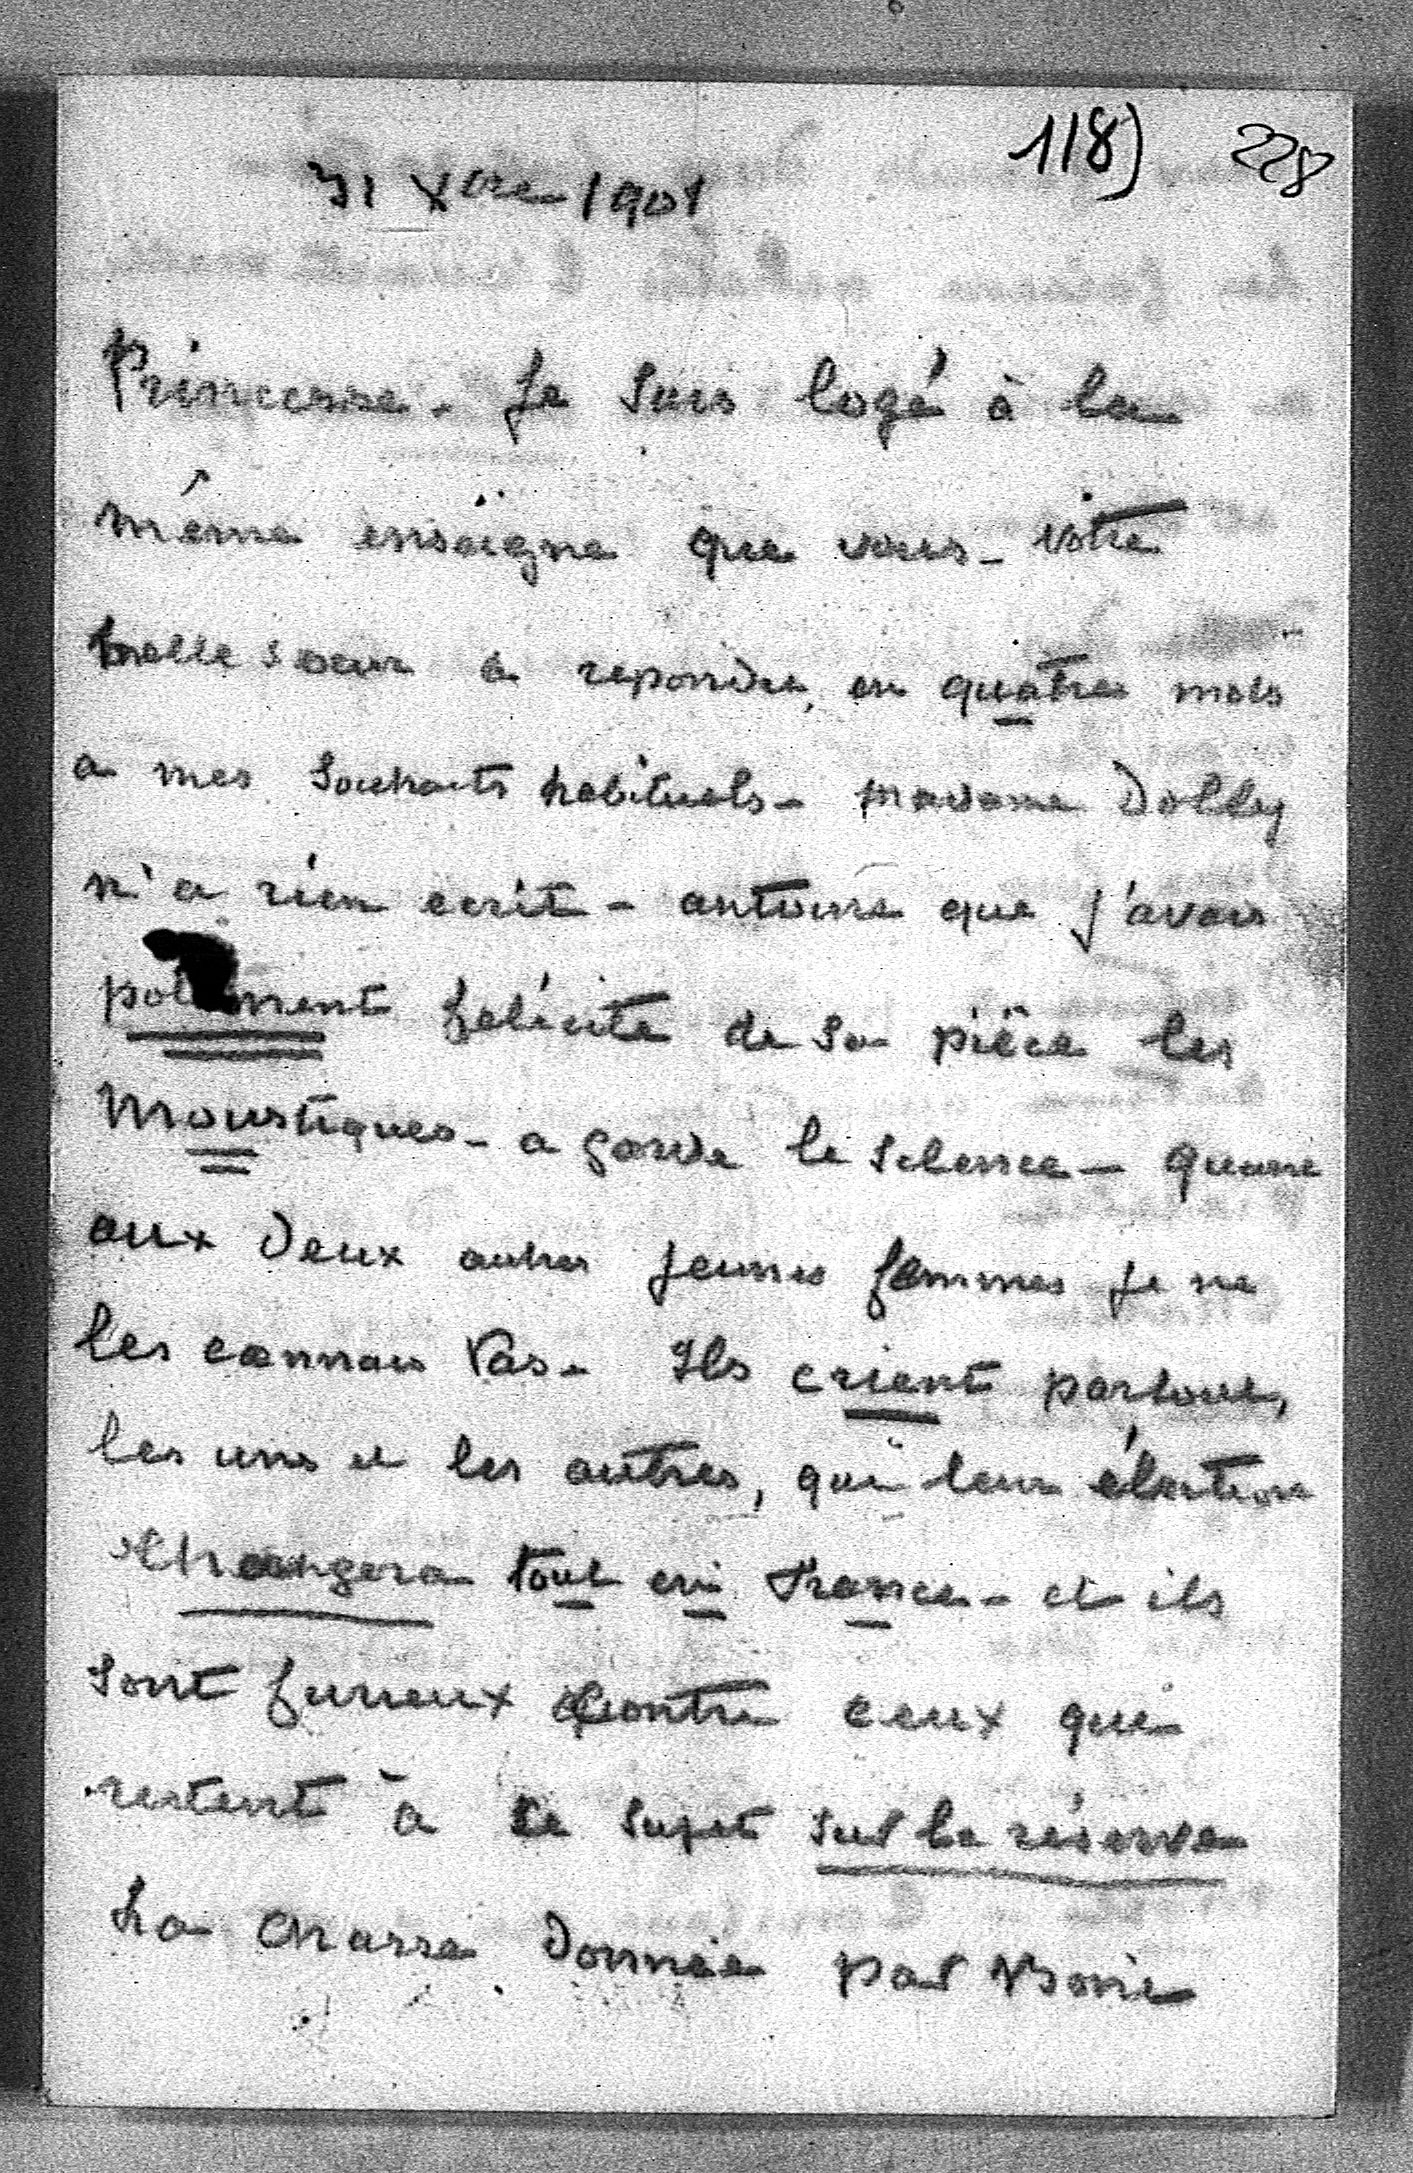 118) 228
31 Xbre 1901
Princesse - Je suis logé à la
même enseigne que vous - votre
belle soeur a repondu, en quatre mots
a mes souhaits habituels - madame Dolly
n'a rien ecrit - antoine que j'avais
poliment felicité de sa pièce les
Moustiques - a garde le silence - quant
aux deux autres jeunes femmes je ne
les connais Pas - Ils crient partout,
les uns et les autres, que leur élection
changera tout en France - et ils
sont furieux contre ceux qui
restent à ce sujet sur la réserve
La chasse donnée par Boni